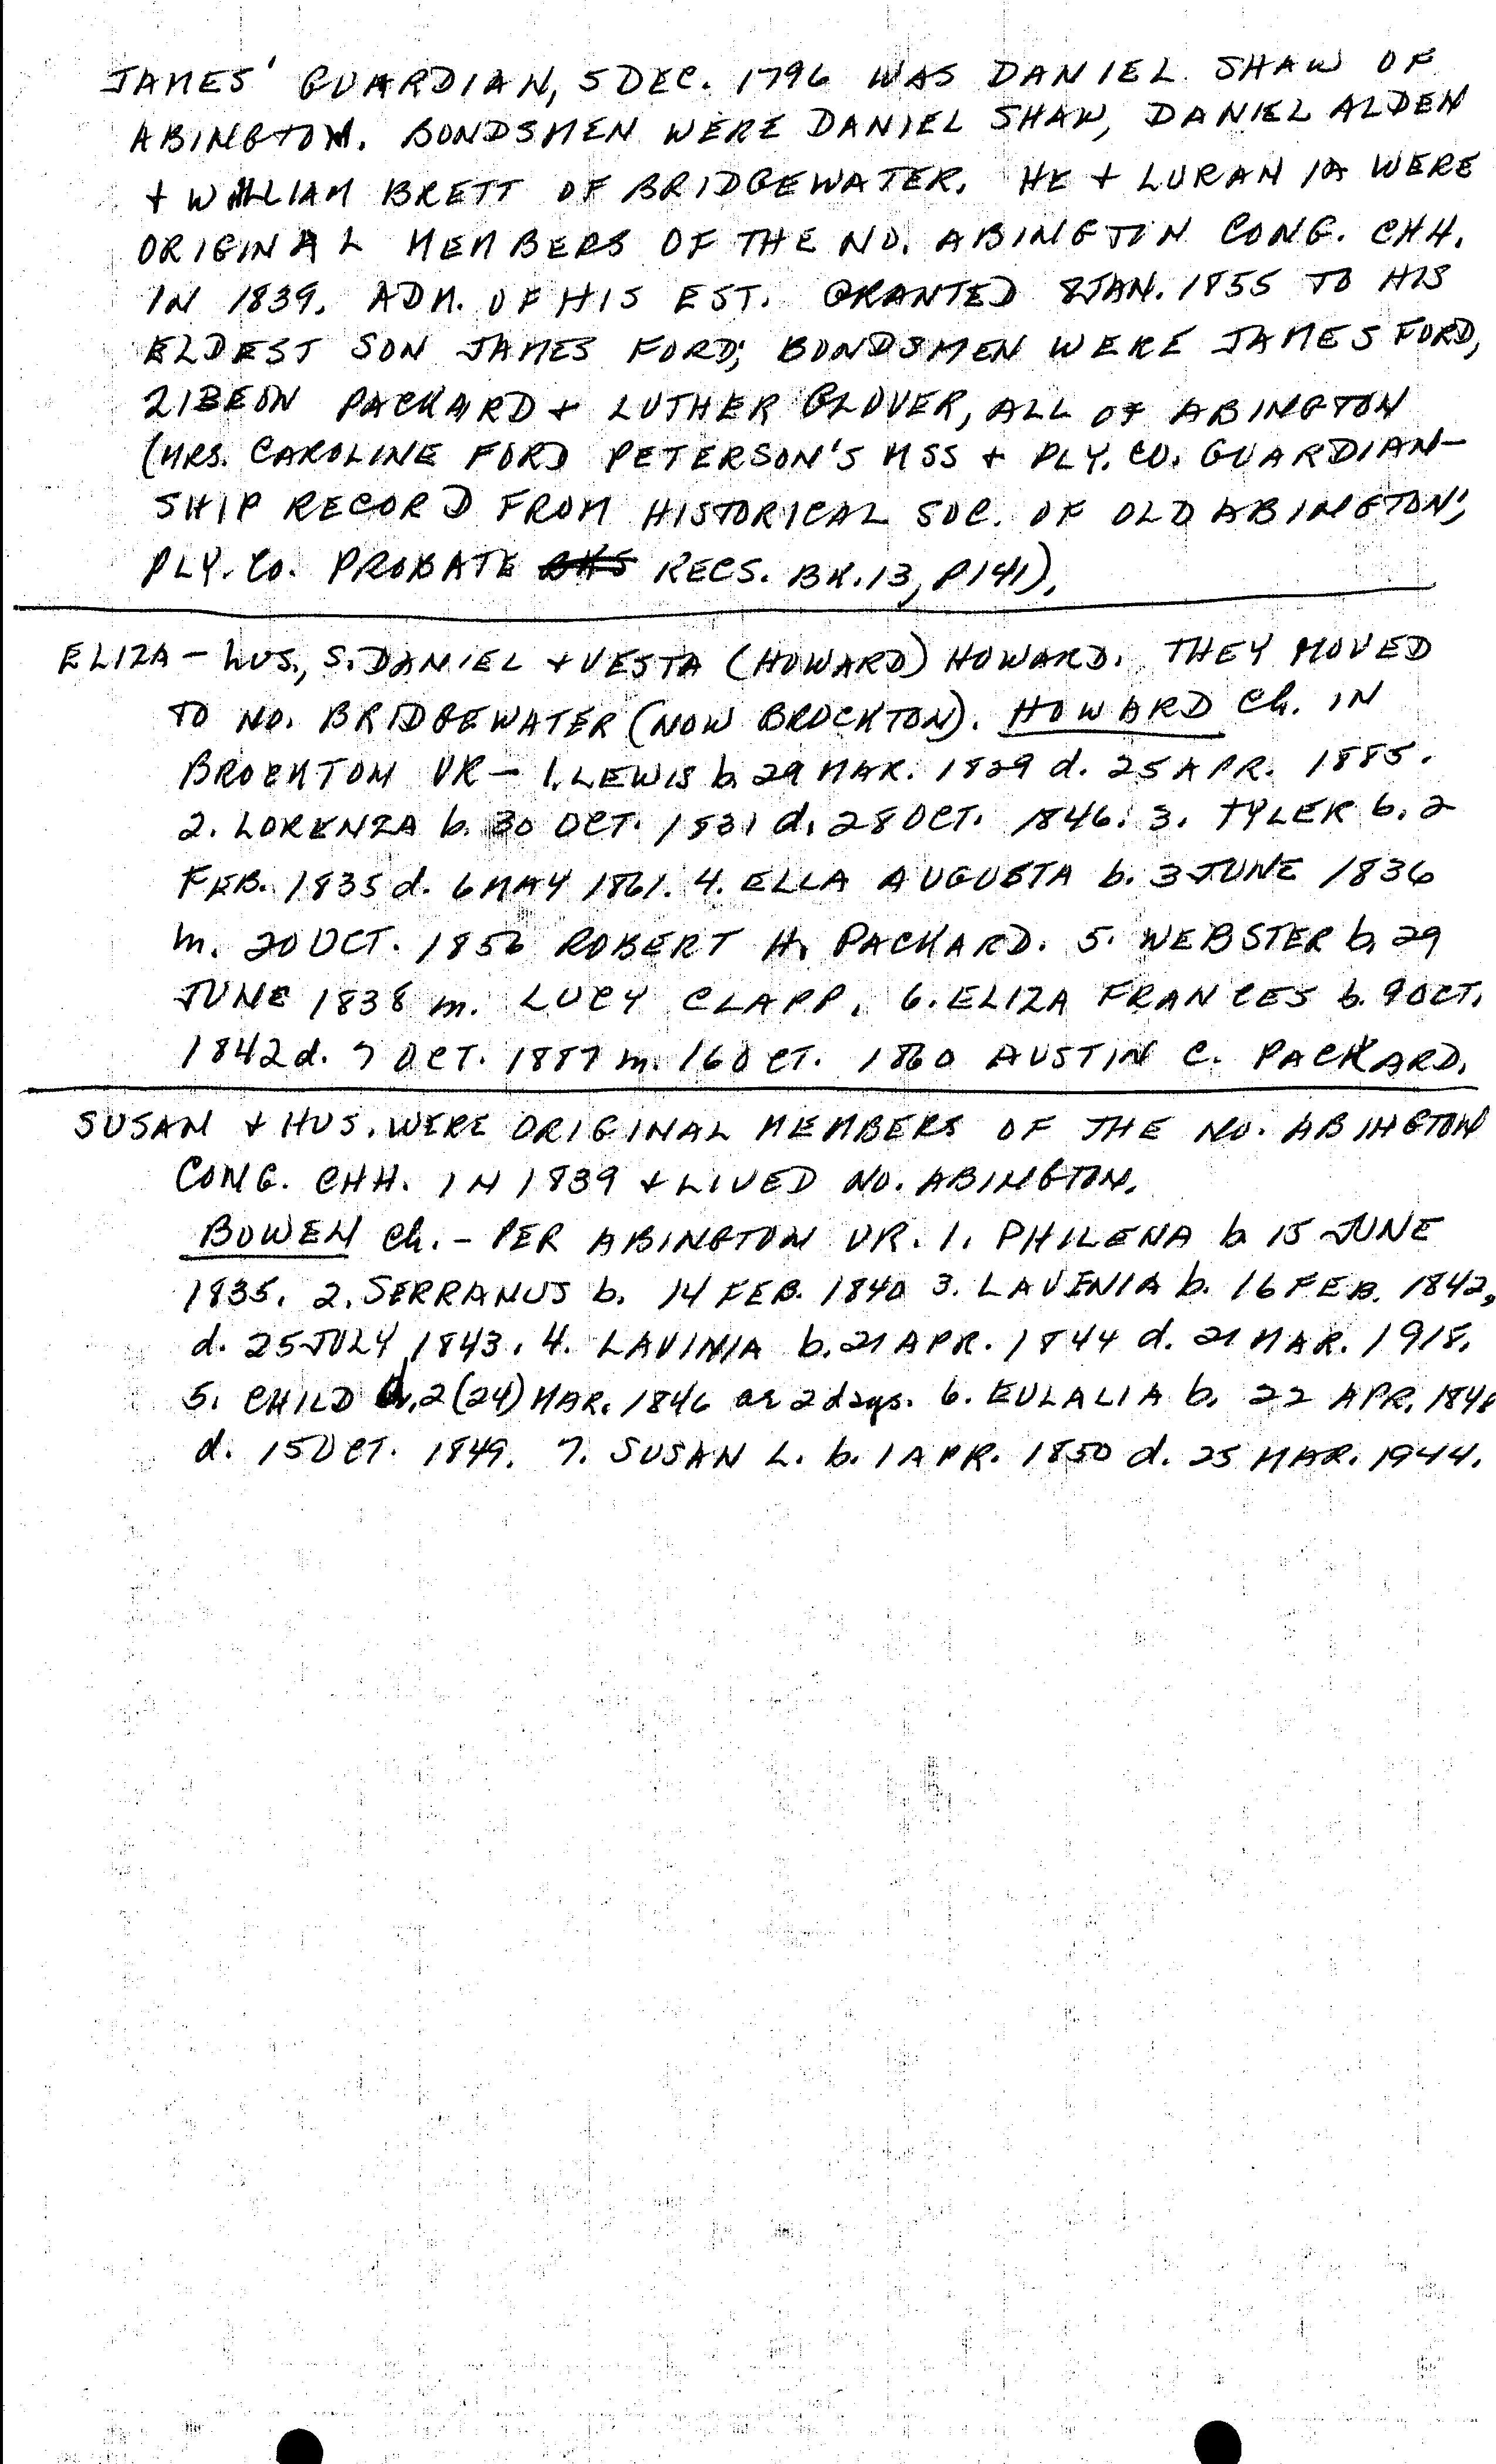 JAMES' GUARDIAN, 5 DEC. 1796 WAS DANIEL SHAW OF
ABINGTON. BONDSMEN WERE DANIEL SHAW, DANIEL ALDEN
+ WILLIAM BRETT OF BRIDGEWATER. HE + LURANIA WERE
ORIGINAL MEMBERS OF THE NO. ABINGTON CONG. CHH.
IN 1839. ADM. OF HIS EST. GRANTED 8 JAN. 1855 TO HIS
ELDEST SON JAMES FORD; BONDSMEN WERE JAMES FORD,
ZIBEON PACKARD + LUTHER GLOVER, ALL OF ABINGTON
(MRS. CAROLINE FORD PETERSON'S MSS + PLY. CO. GUARDIAN-
SHIP RECORD FROM HISTORICAL SOC. OF OLD ABINGTON;
PLY. CO. PROBATE RECS. BK. 13, P141).
ELIZA - hus., S. DANIEL + VESTA (HOWARD) HOWARD. THEY MOVED
TO NO. BRIDGEWATER (NOW BROCKTON). HOWARD Ch. IN
BROCKTON VR - 1. LEWIS b. 29 MAR. 1829 d. 25 APR. 1885.
2. LORENZA b. 30 OCT. 1831 d. 28 OCT. 1846. 3. TYLER b. 2
FEB. 1835 d. 6 MAY 1861. 4. ELLA AUGUSTA b. 3 JUNE 1836
m. 20 OCT. 1856 ROBERT H. PACKARD. 5. WEBSTER b. 29
JUNE 1838 m. LUCY CLAPP. 6. ELIZA FRANCES b. 9 OCT.
1842 d. 7 OCT. 1887 m. 16 OCT. 1860 AUSTIN C. PACKARD.
SUSAN + HUS. WERE ORIGINAL MEMBERS OF THE NO. ABINGTON
CONG. CHH. IN 1839 + LIVED NO. ABINGTON.
BOWEN Ch. - PER ABINGTON VR. 1. PHILENA b. 15 JUNE
1835. 2. SERRANUS b. 14 FEB. 1840 3. LAVINIA b. 16 FEB. 1842,
d. 25 JULY 1843. 4. LAVINIA b. 21 APR. 1844 d. 21 MAR. 1918.
5. CHILD d. 2 (24) MAR. 1846 ae 2 days. 6. EULALIA b. 22 APR. 1848
d. 15 OCT. 1849. 7. SUSAN L. b. 1 APR. 1850 d. 25 MAR. 1944.